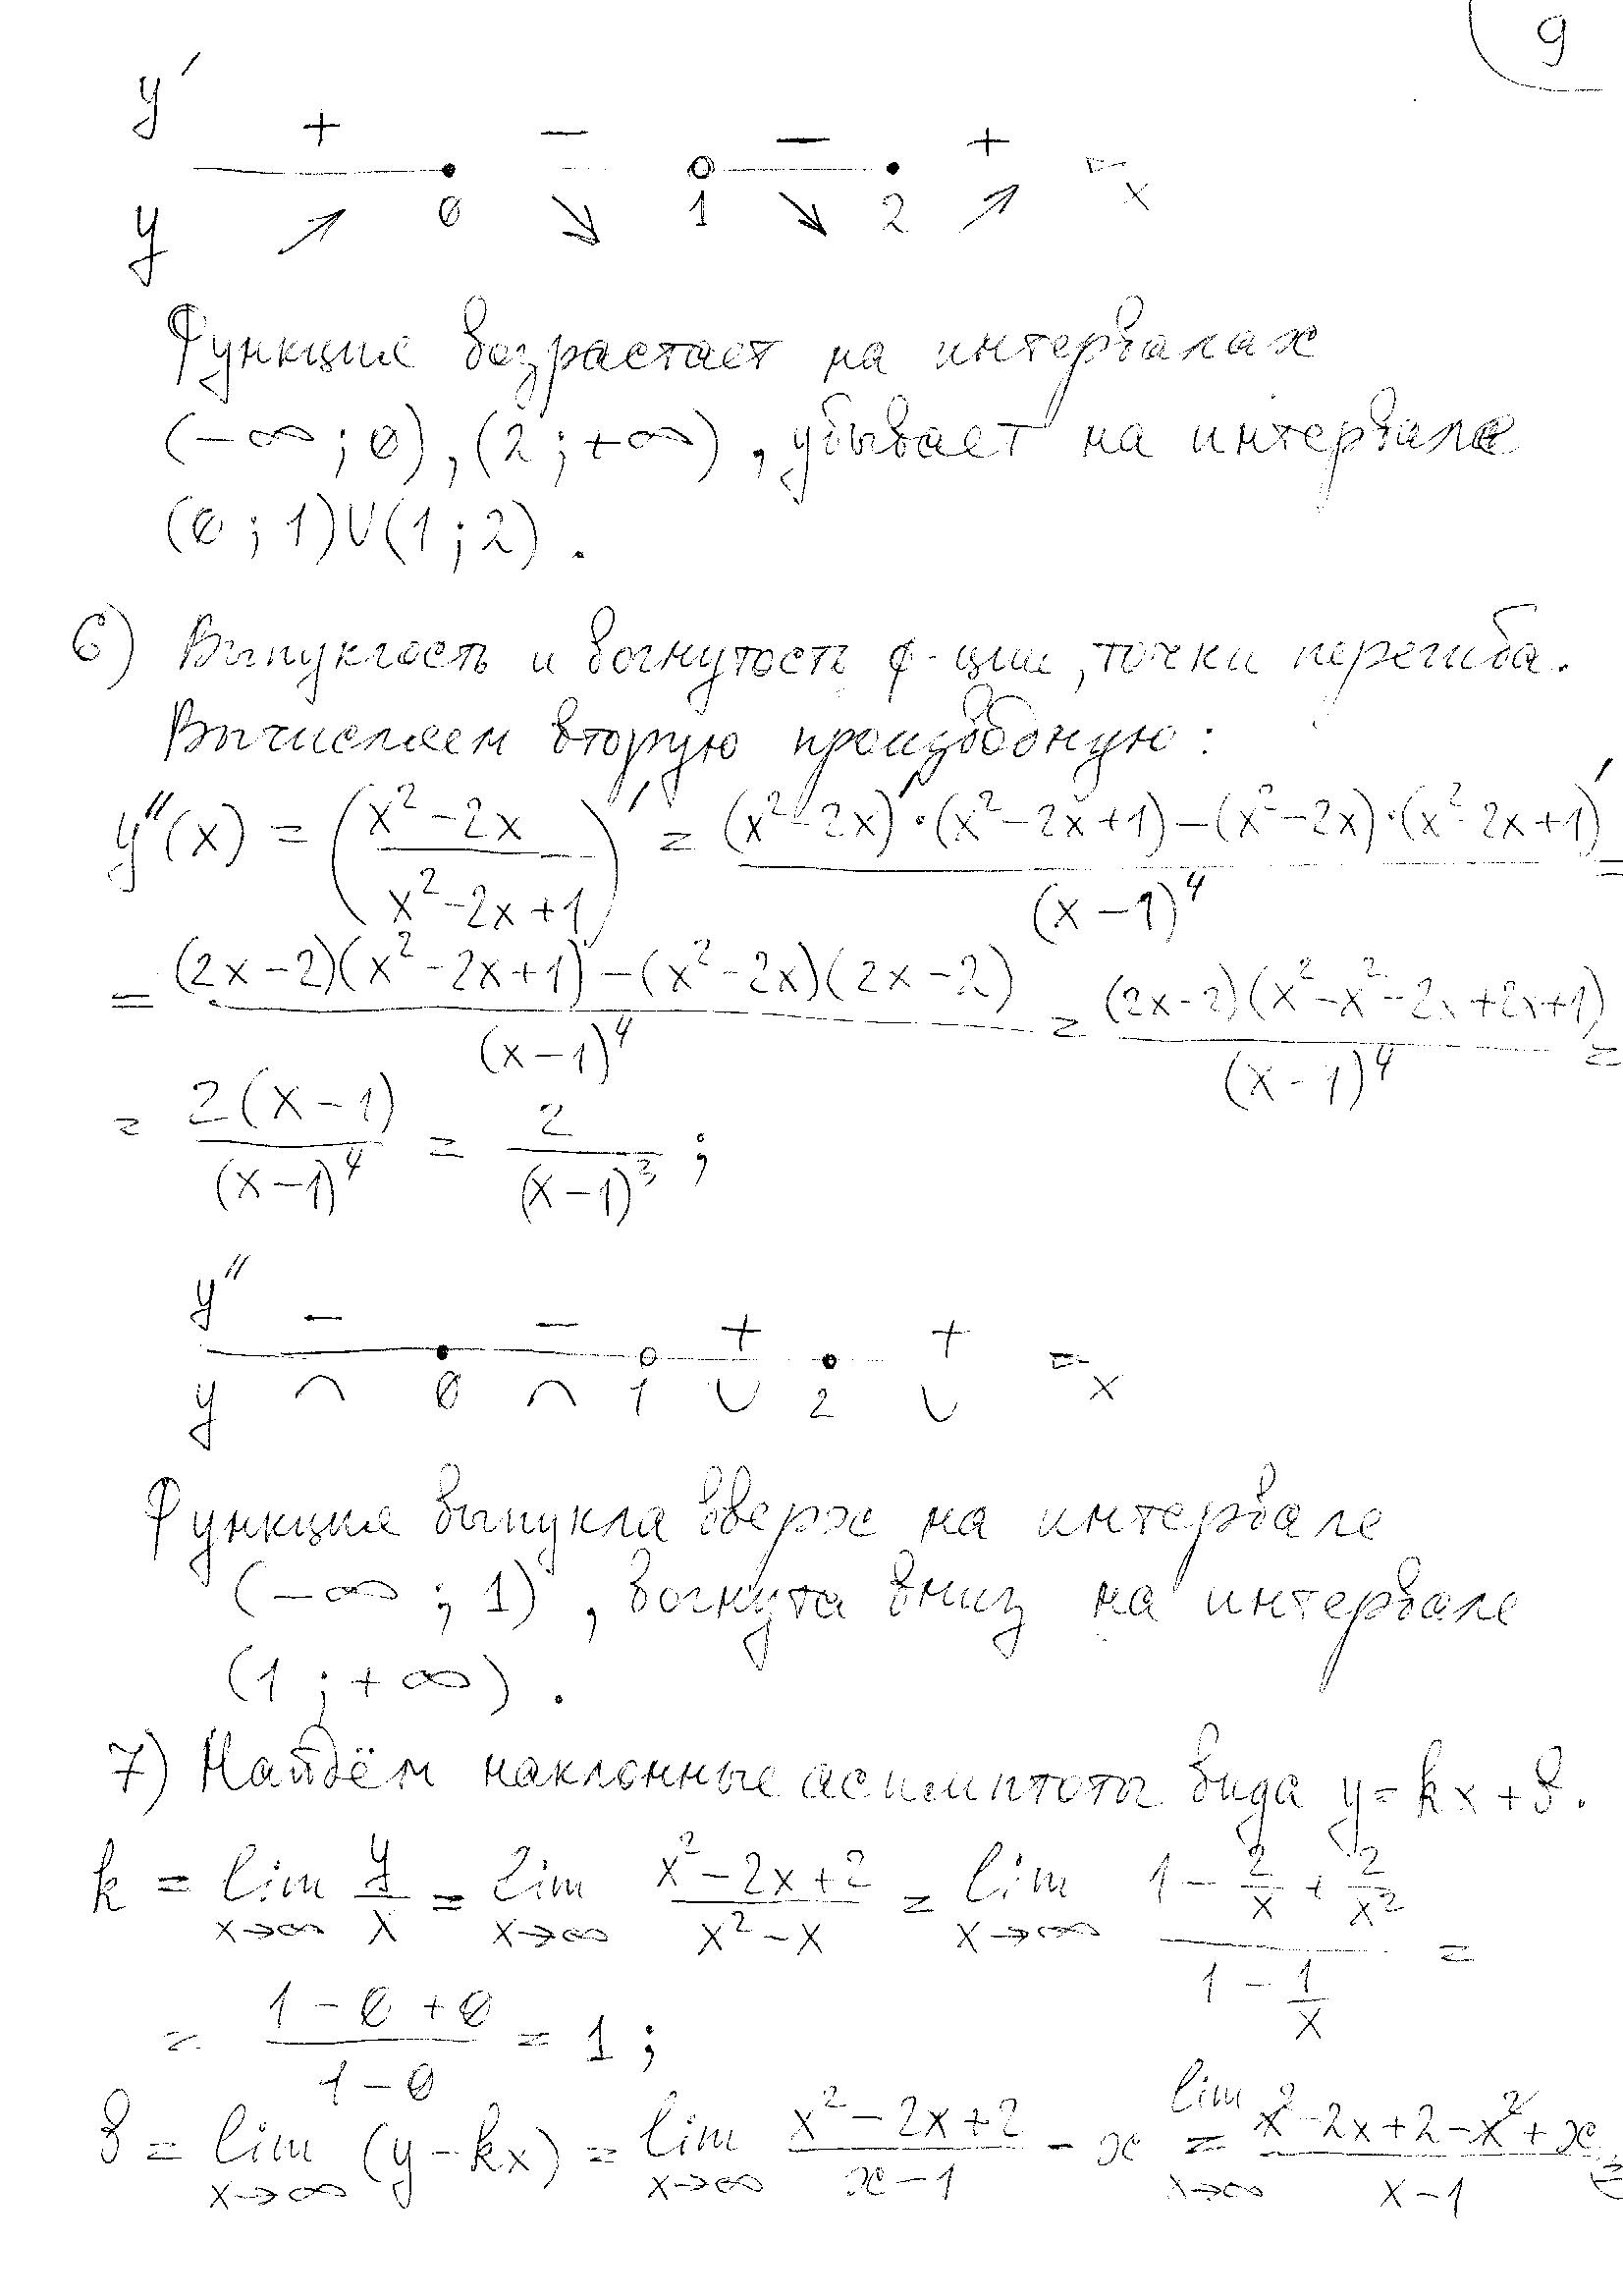 9
y′ + − − +
0 1 2 x
y ↗ ↘ ↘ ↗
Функция возрастает на интервалах
(−∞; 0), (2; +∞), убывает на интервале
(0; 1)∪(1; 2).
6) Выпуклость и вогнутость ф-ции, точки перегиба.
Вычисляем вторую производную:
y″(x) = ((x² − 2x)/(x² − 2x + 1))′ = ((x² − 2x)′·(x² − 2x + 1) − (x² − 2x)·(x² − 2x + 1)′)/(x − 1)⁴ =
= ((2x − 2)(x² − 2x + 1) − (x² − 2x)(2x − 2))/(x − 1)⁴ = ((2x − 2)(x² − x² − 2x + 2x + 1))/(x − 1)⁴ =
= 2(x − 1)/(x − 1)⁴ = 2/(x − 1)³ ;
y″ − − + +
0 1 2 x
y ∩ ∩ ∪ ∪
Функция выпукла вверх на интервале
(−∞; 1), вогнута вниз на интервале
(1; +∞).
7) Найдём наклонные асимптоты вида y = kx + в.
k = lim x→∞ y/x = lim x→∞ (x² − 2x + 2)/(x² − x) = lim x→∞ (1 − 2/x + 2/x²)/(1 − 1/x) =
= (1 − 0 + 0)/(1 − 0) = 1 ;
в = lim x→∞ (y − kx) = lim x→∞ (x² − 2x + 2)/(x − 1) − x = lim x→∞ (x² − 2x + 2 − x² + x)/(x − 1) =